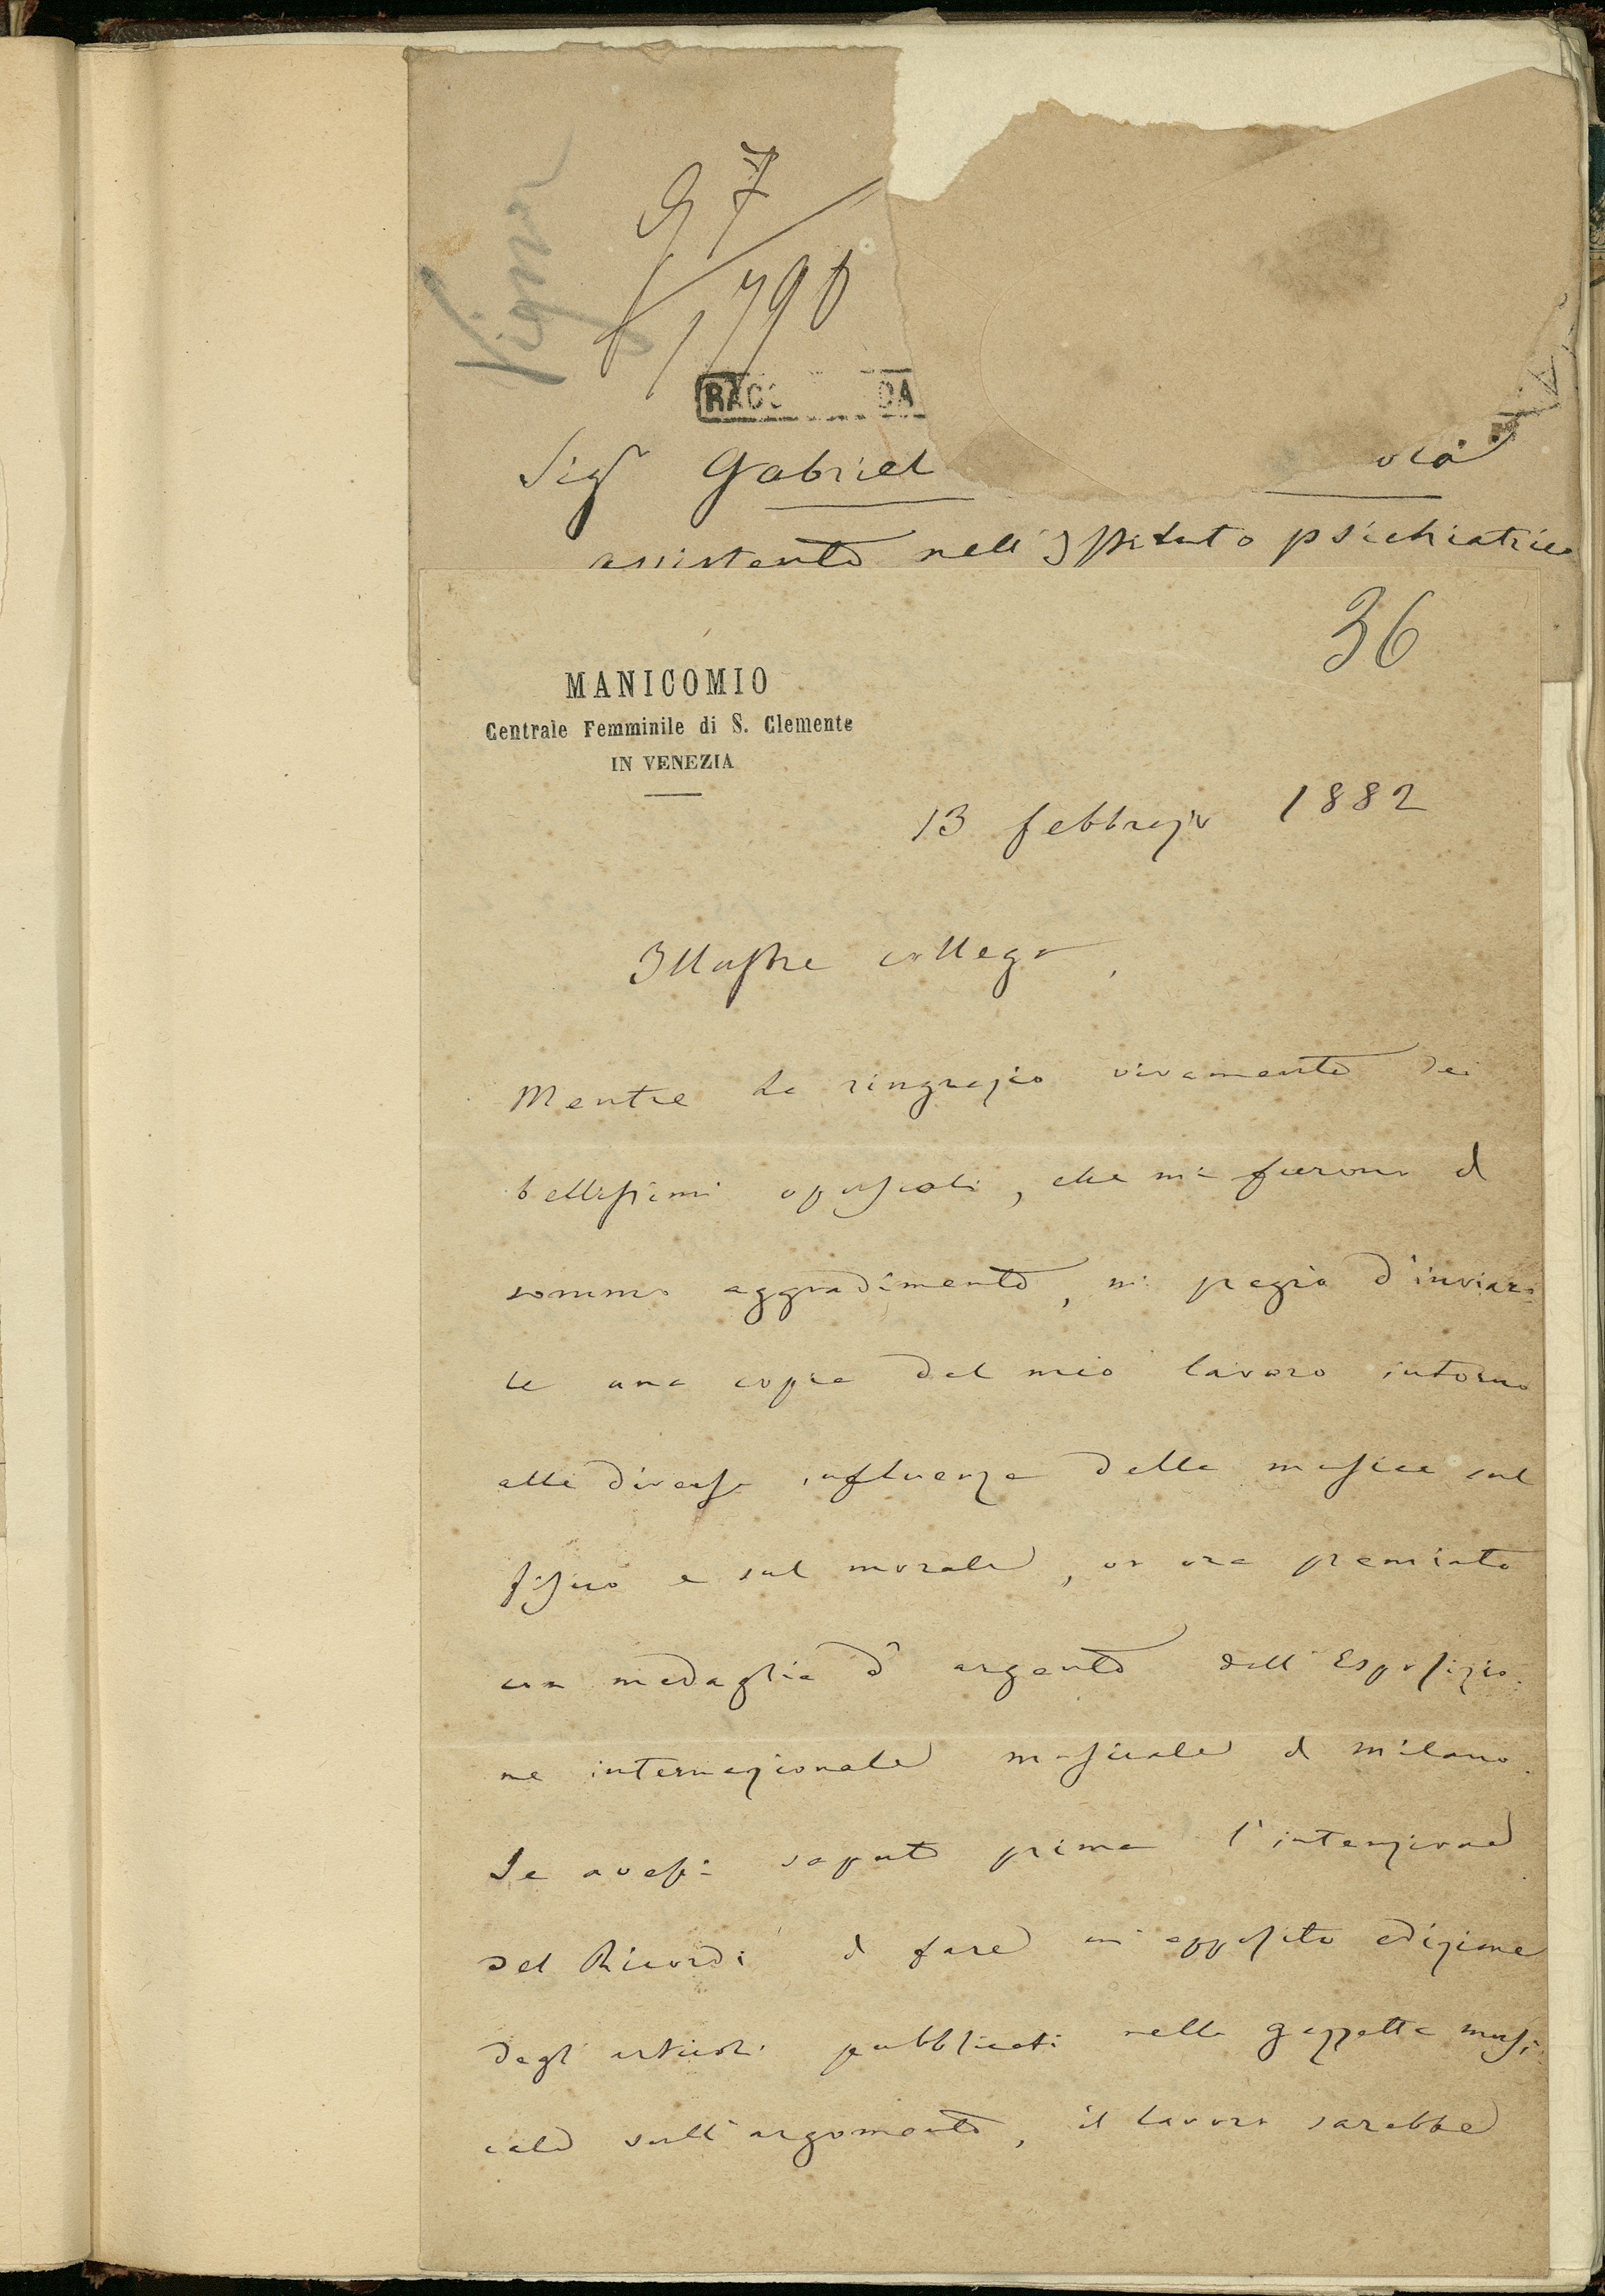 Vigna
97
1790
RACC DA
Sigr Gabriel
assistente nell'Istituto psichiatrico
36
MANICOMIO
Centrale Femminile di S. Clemente
IN VENEZIA
13 febbrajo 1882
Illustre collega,
Mentre La ringrazio vivamente dei
bellissimi opuscoli, che mi furono di
sommo aggradimento, mi pregio d'inviar=
le una copia del mio lavoro intorno
alla diversa influenza della musica sul
fisico e sul morale, or ora premiato
con medaglia d'argento dell'Esposizio=
ne internazionale musicale di Milano.
Se avessi saputo prima l'intenzione
del Ricordi di fare un'apposita edizione
degl'articoli pubblicati nella gazzetta musi=
cale sull'argomento, il lavoro sarebbe